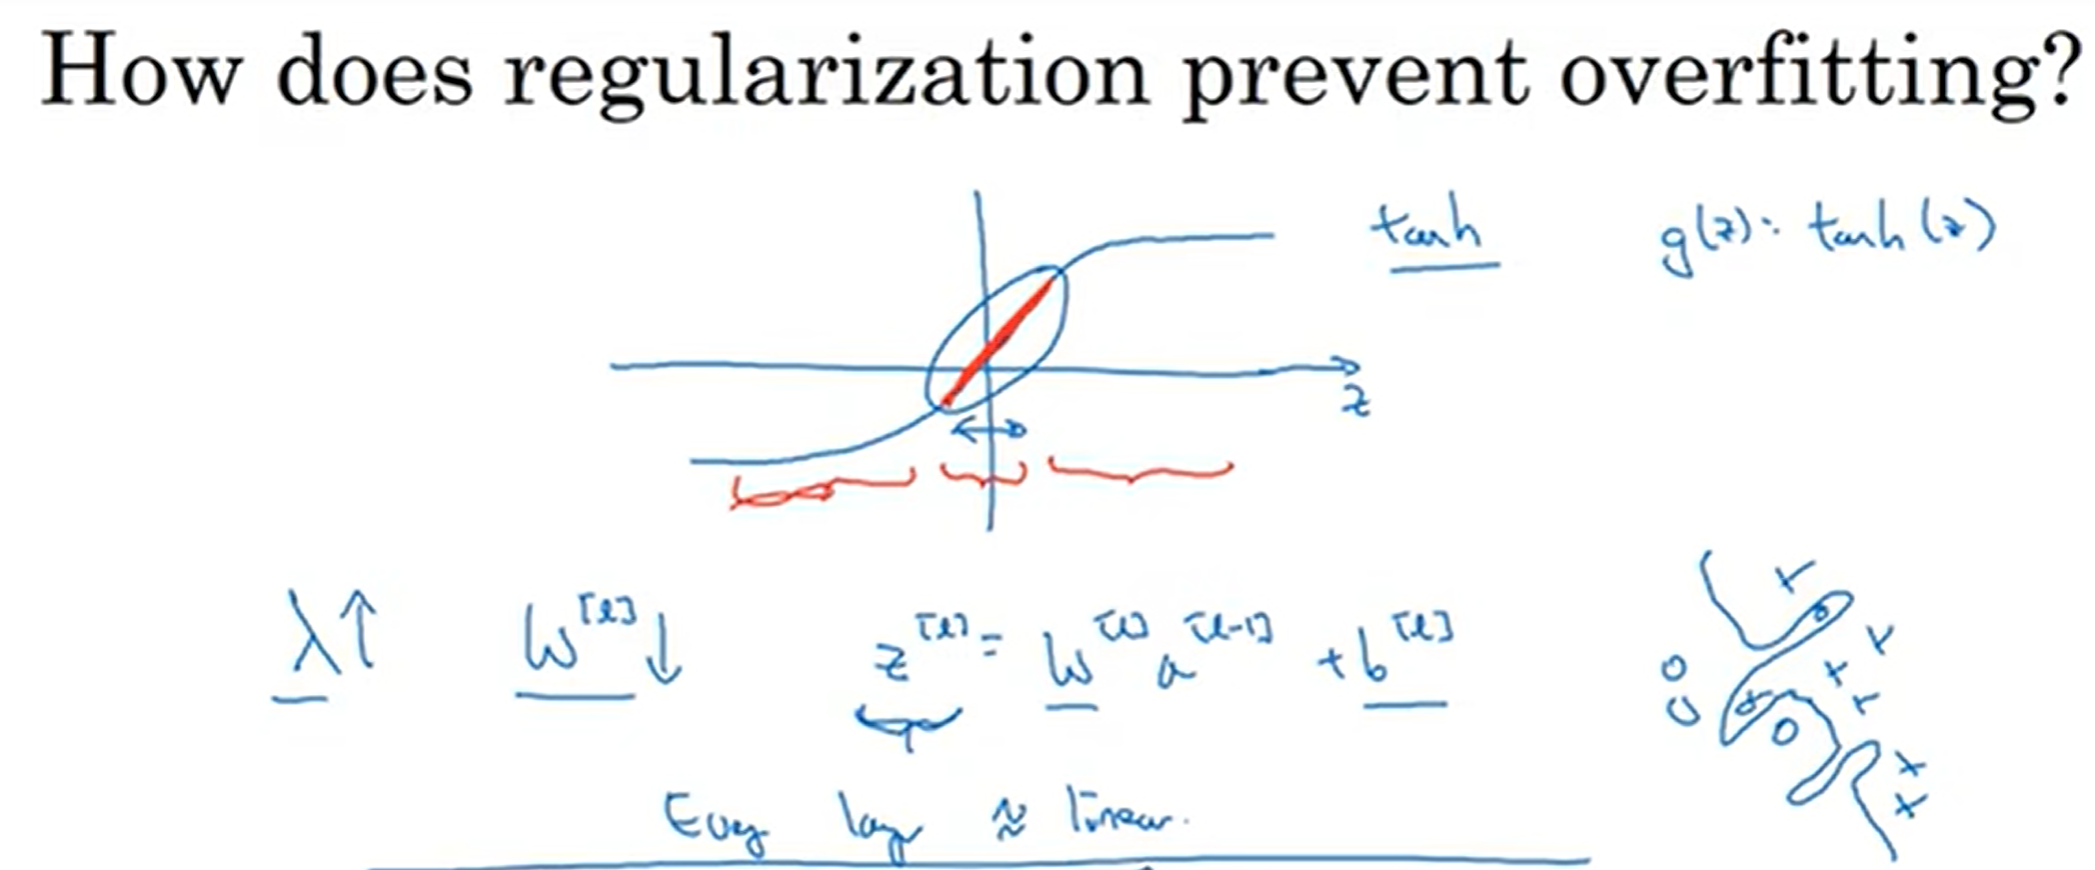 How does regularization prevent overfitting?
tanh g(z) = tanh(z)
z
λ↑ W[l]↓ z[l] = W[l] a[l-1] + b[l]
Every layer ≈ linear.